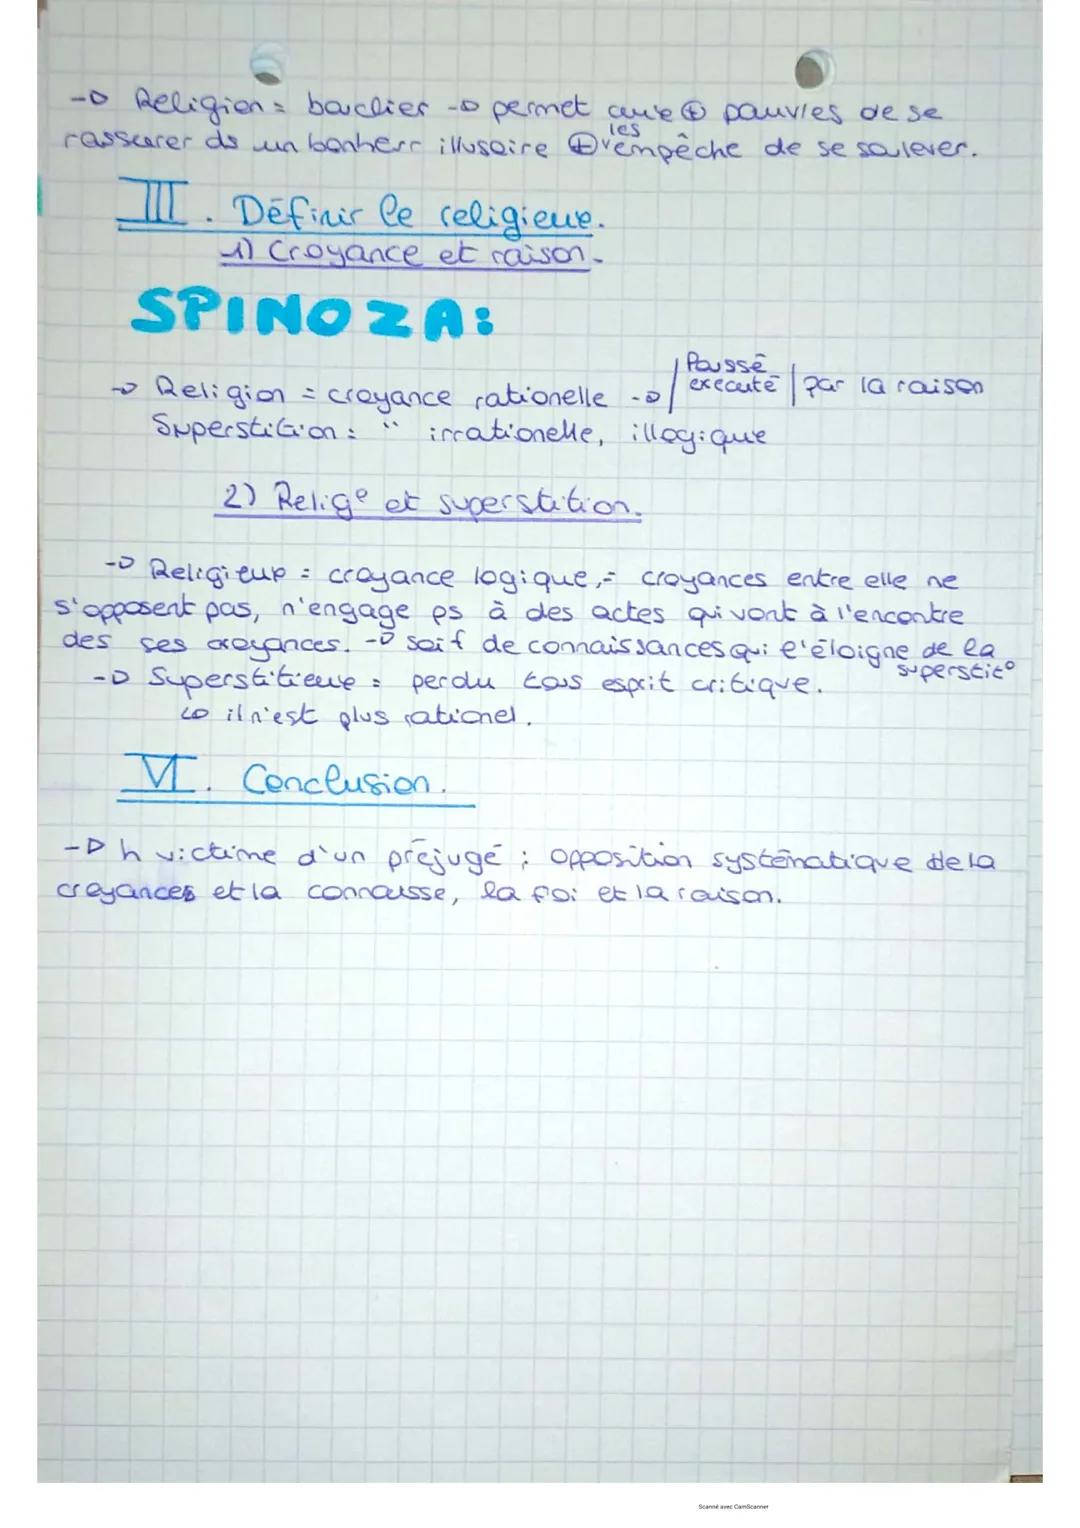 → Religion = bouclier → permet aux ⊕ pauvres de se
rassurer ds un bonheur illusoire ⊕ les empêche de se soulever.
III. Définir le religieux.
1) Croyance et raison.
SPINOZA:
→ Religion = croyance rationelle → | Poussé executé | par la raison
Superstition : " irrationelle, illogique
2) Relig° et superstition.
→ Religieux = croyance logique, = croyances entre elle ne
s'opposent pas, n'engage ps à des actes qui vont à l'encontre
des ses croyances. → soif de connaissances qui l'éloigne de la superstit°
→ Superstitieux = perdu tous esprit critique.
↳ il n'est plus rationel.
VI. Conclusion.
→ h victime d'un préjugé ; opposition systématique de la
croyances et la connausse, la foi et la raison.
Scanné avec CamScanner